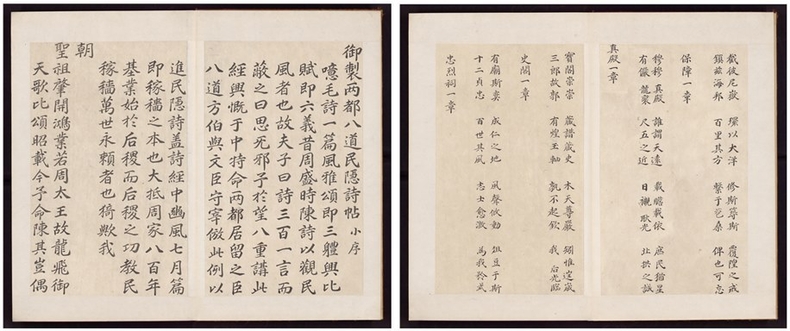 御製兩都八道民隱詩帖 小序
噫毛詩一篇風雅頌即三軆興比
賦即六義昔周盛時陳詩以觀民
風者也故夫子曰詩三百一言而
蔽之曰思旡邪予於望八重講此
經興慨于中特命兩都居留之臣
八道方伯與文臣守宰倣此例以
進民隱詩盖詩經中豳風七月篇
即稼穡之本也大抵周家八百年
基業始於后稷而后稷之功敎民
稼穡萬世永賴者也猗歟我
朝
聖祖肇開鴻業若周太王故龍飛御
天歌比頌昭載今予命陳其豈偶
巘彼尼嶽 環以大洋 修斯 斯 覆隍之戒
鎭玆海邦 百里其方 繫于苞桑 俾也可忘
保障一章
穆穆眞殿 誰謂天遠 載瞻載依 庶民猶星
有儼龍衮 之近 日覲耿光 北拱之誠
真殿一章
寶閣崇崇 藏譜藏史 木天尊嚴 惟
三郎故郡 有煌玉軸 孰不起欽 我后光臨
史閣一章
有廟斯奐 成仁之地 風聲攸動 俎豆于斯
十二貞忠 百世其風 志士愈激 爲我矜式
忠烈祠一章